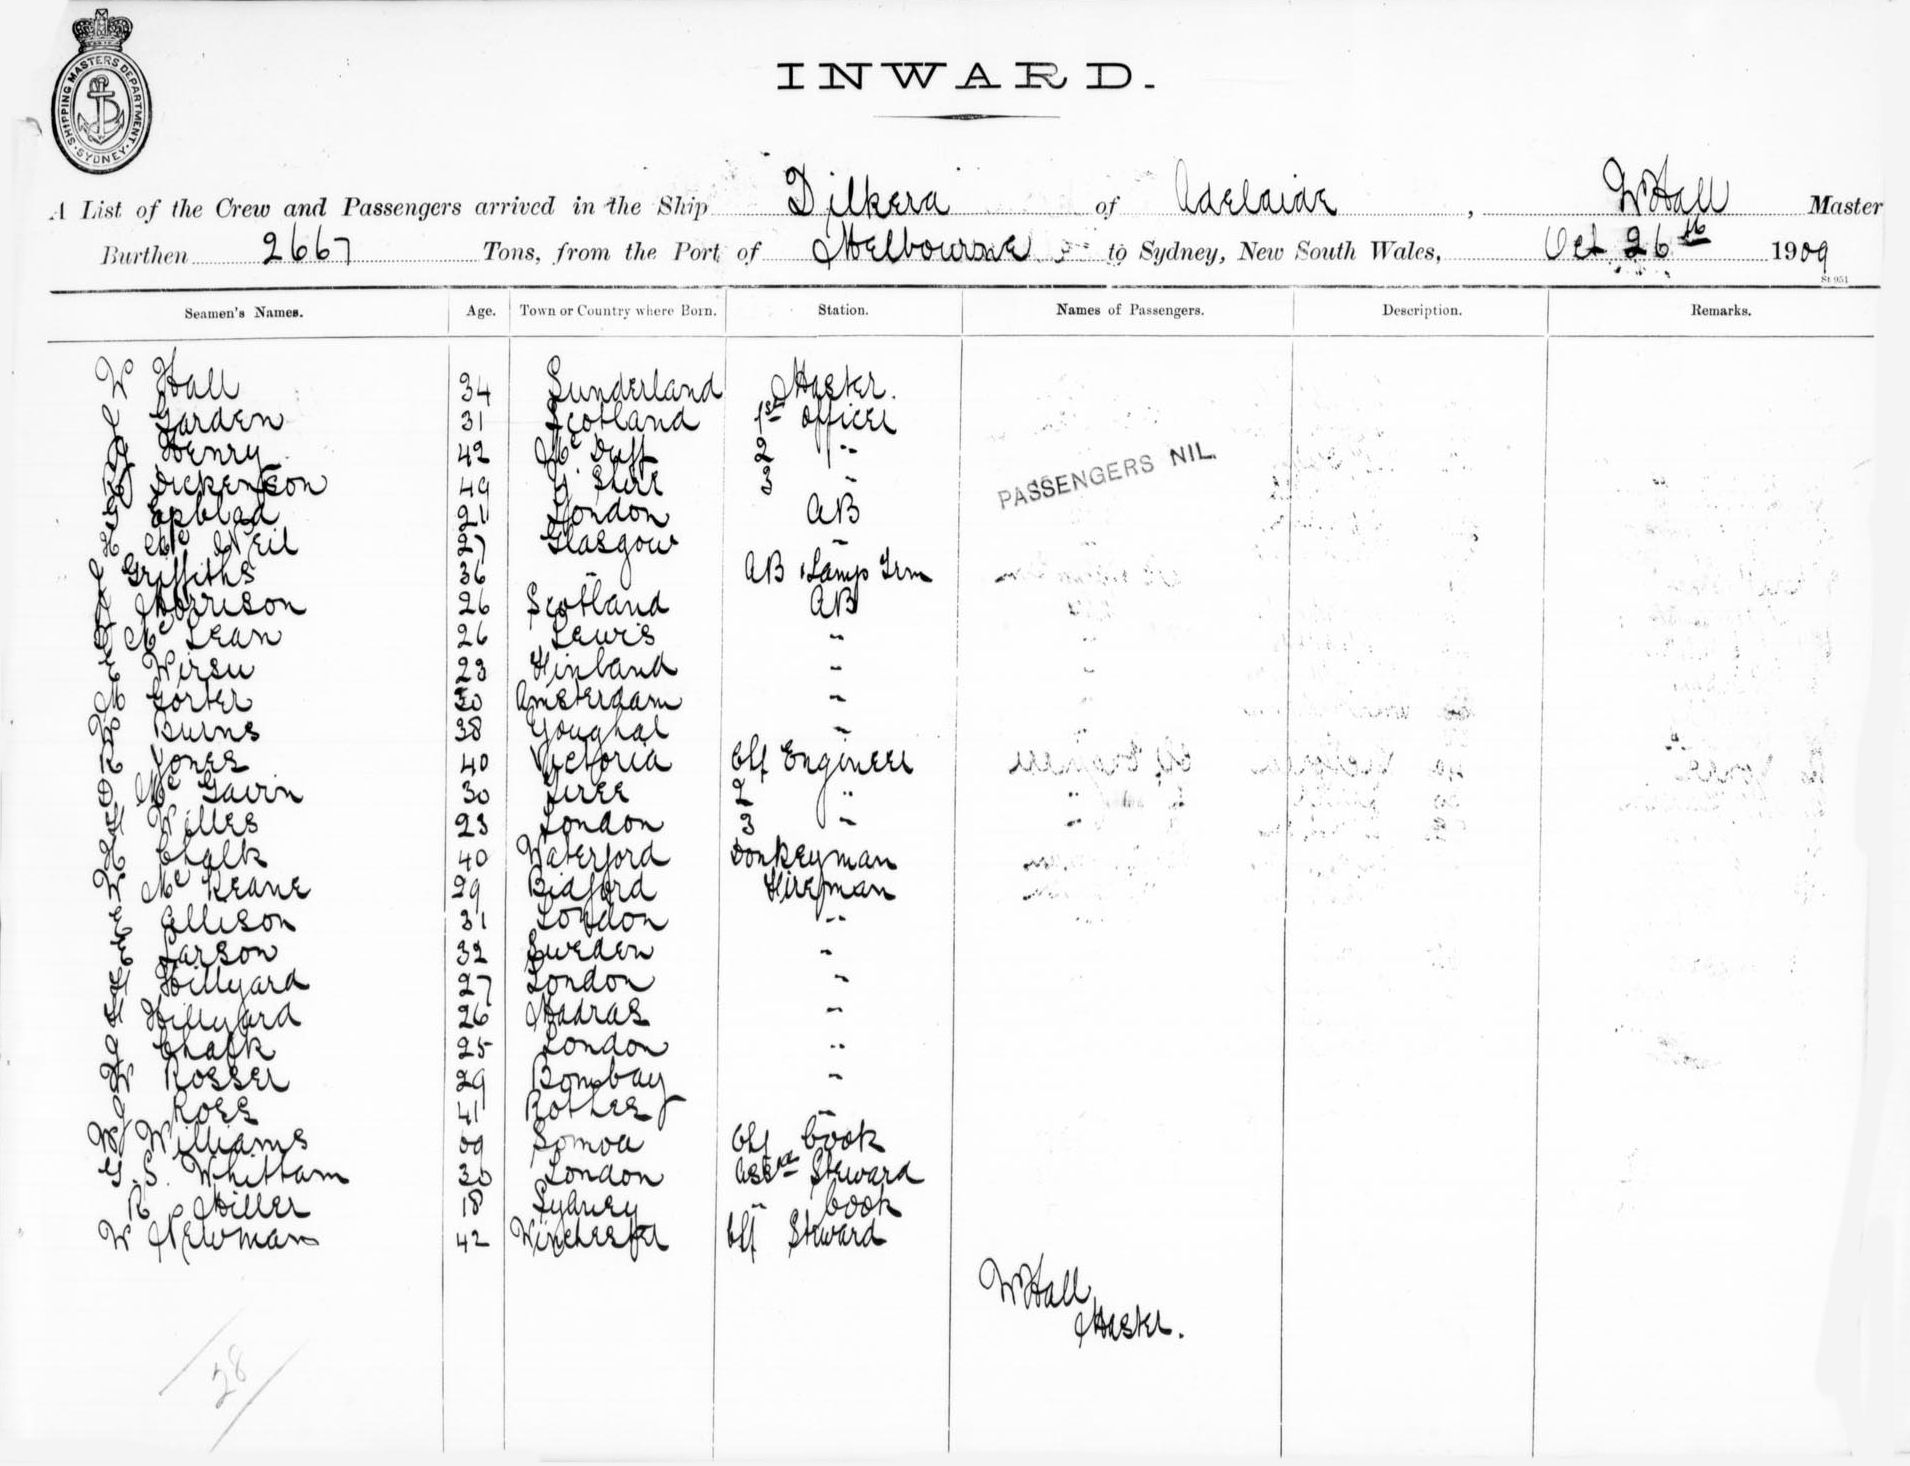 SHIPPING MASTERS DEPARTMENT
SYDNEY
INWARD.
A List of the Crew and Passengers arrived in the Ship Dilkera of Adelaide, W Hall Master
Burthen 2667 Tons, from the Port of Melbourne to Sydney, New South Wales, Oct 26th 1909
St 951
Seamen's Names. Age. Town or Country where Born. Station. Names of Passengers. Description. Remarks.
W Hall 34 Sunderland Master.
J Garden 31 Scotland 1st Officer
Henry 42 Mc Duff 2 "
Dickenson 49 3 "
21 London AB
Mc Neil 27 Glasgow "
J Griffiths 36 " AB & Lamp Trm
Morrison 26 Scotland AB
Mc Lean 26 Lewis "
E Wirsu 23 Finland "
M Gorter 30 Amsterdam "
W Burns 38 Youghal "
R Jones 40 Victoria Chf Engineer
D Mc Gavin 30 Tiree 2 "
Willes 23 London 3 "
H Chalk 40 Waterford Donkeyman
W Mc Keane 29 Bidford Fireman
E Allison 31 London "
E Larson 32 Sweden "
H Hillyard 27 London "
H Hillyard 26 Madras "
G Chalk 25 London "
W Rosser 29 Bombay "
J Ross 41 Rothes "
W Williams 09 Somoa Chf Cook
G. S. Whittam 30 London Asst Steward
R Miller 18 Sydney " Cook
W Newman 42 Winchester Chf Steward
PASSENGERS NIL.
W Hall
Master.
28